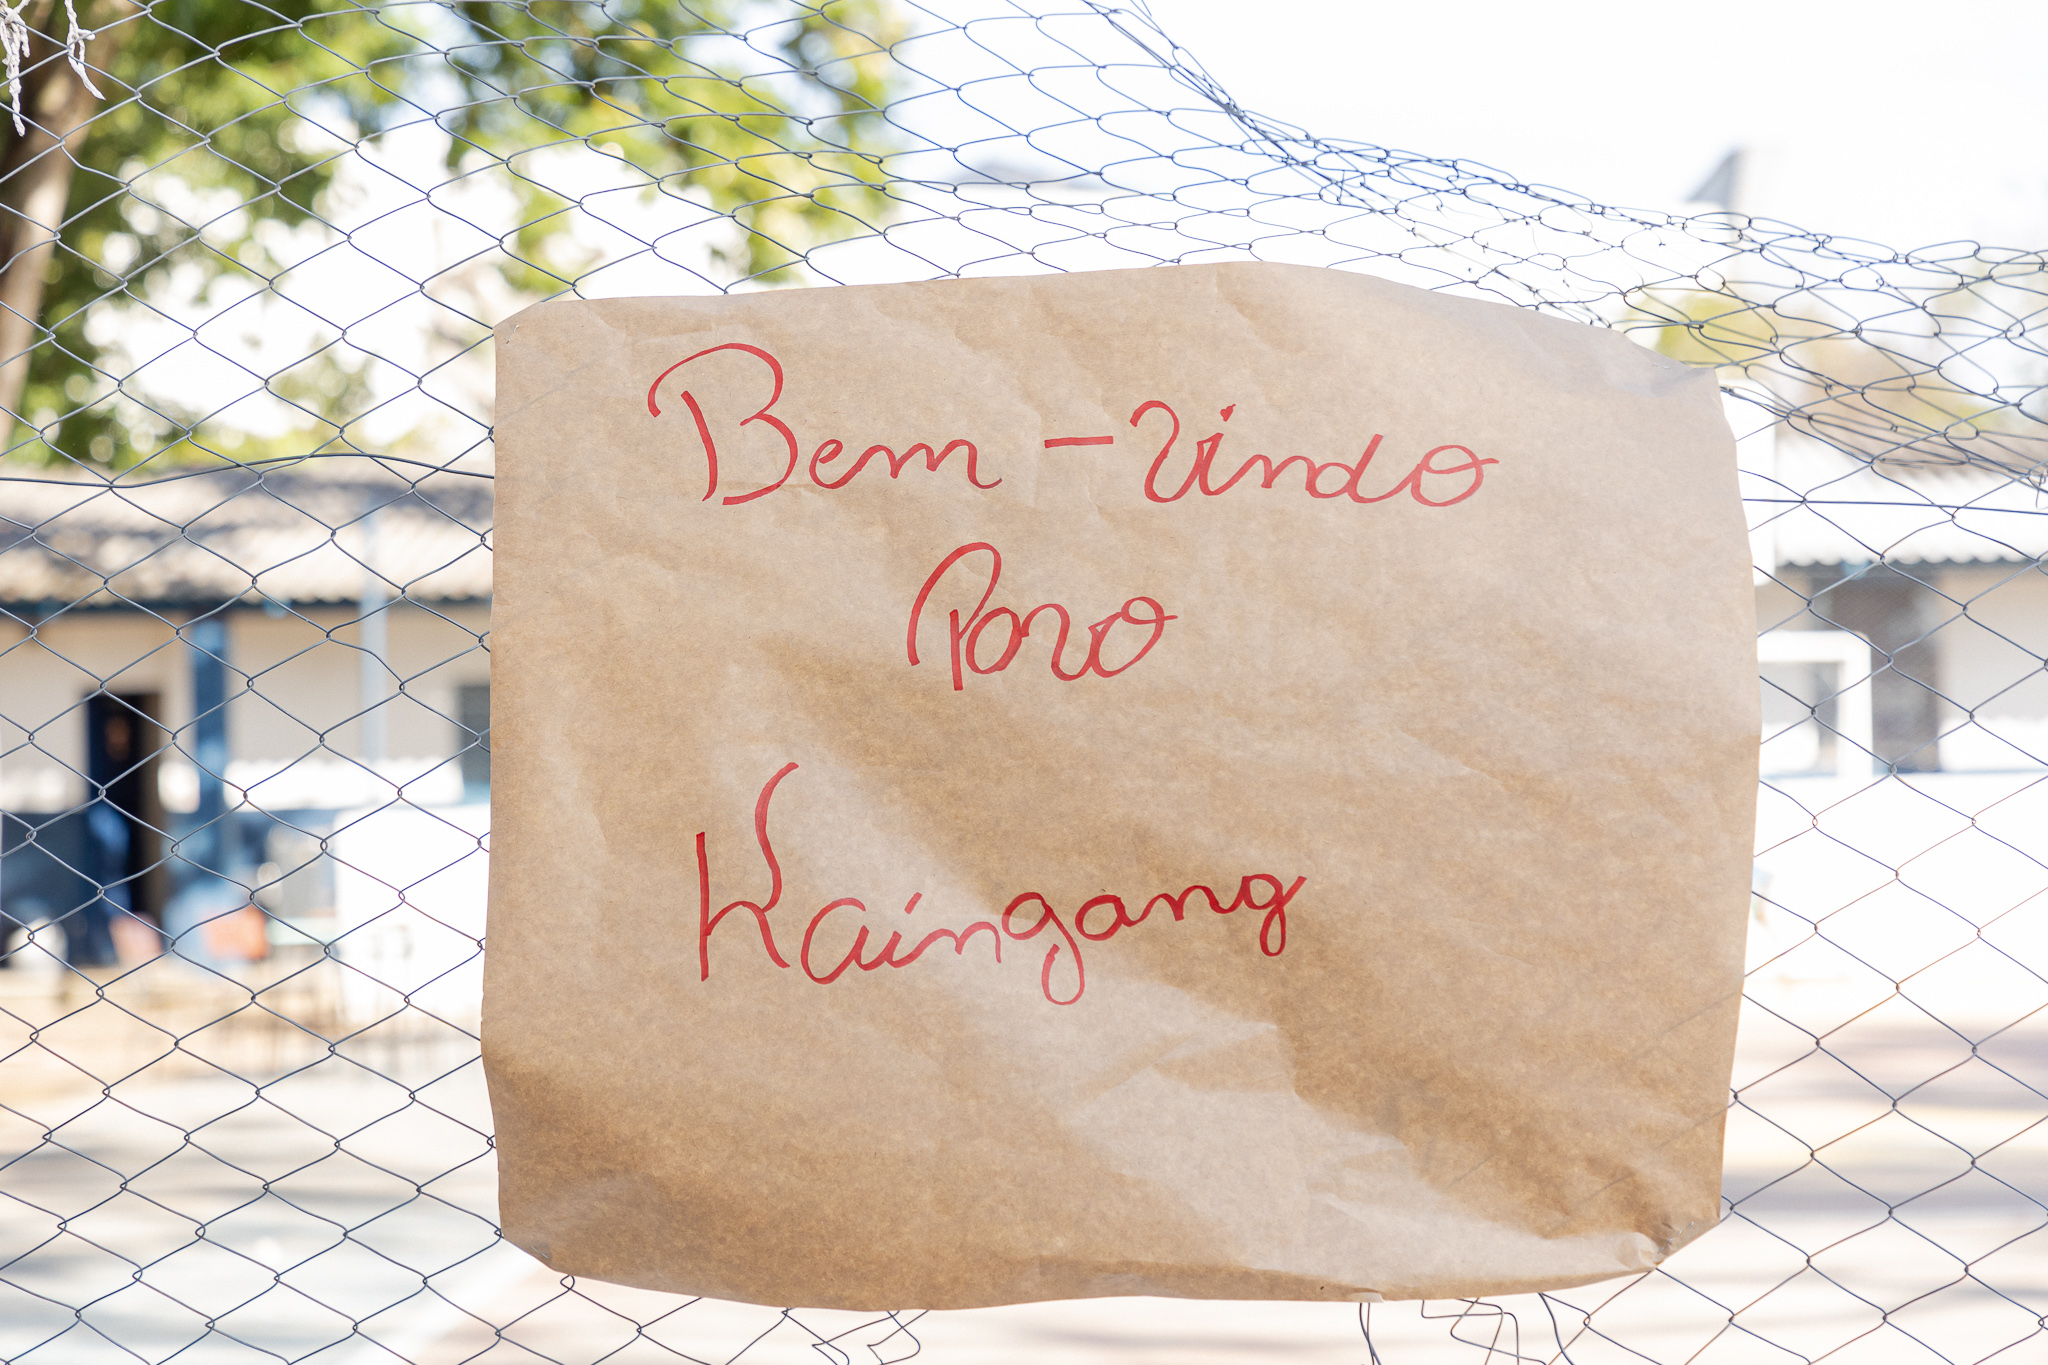 Bem-Vindo
Povo
Kaingang